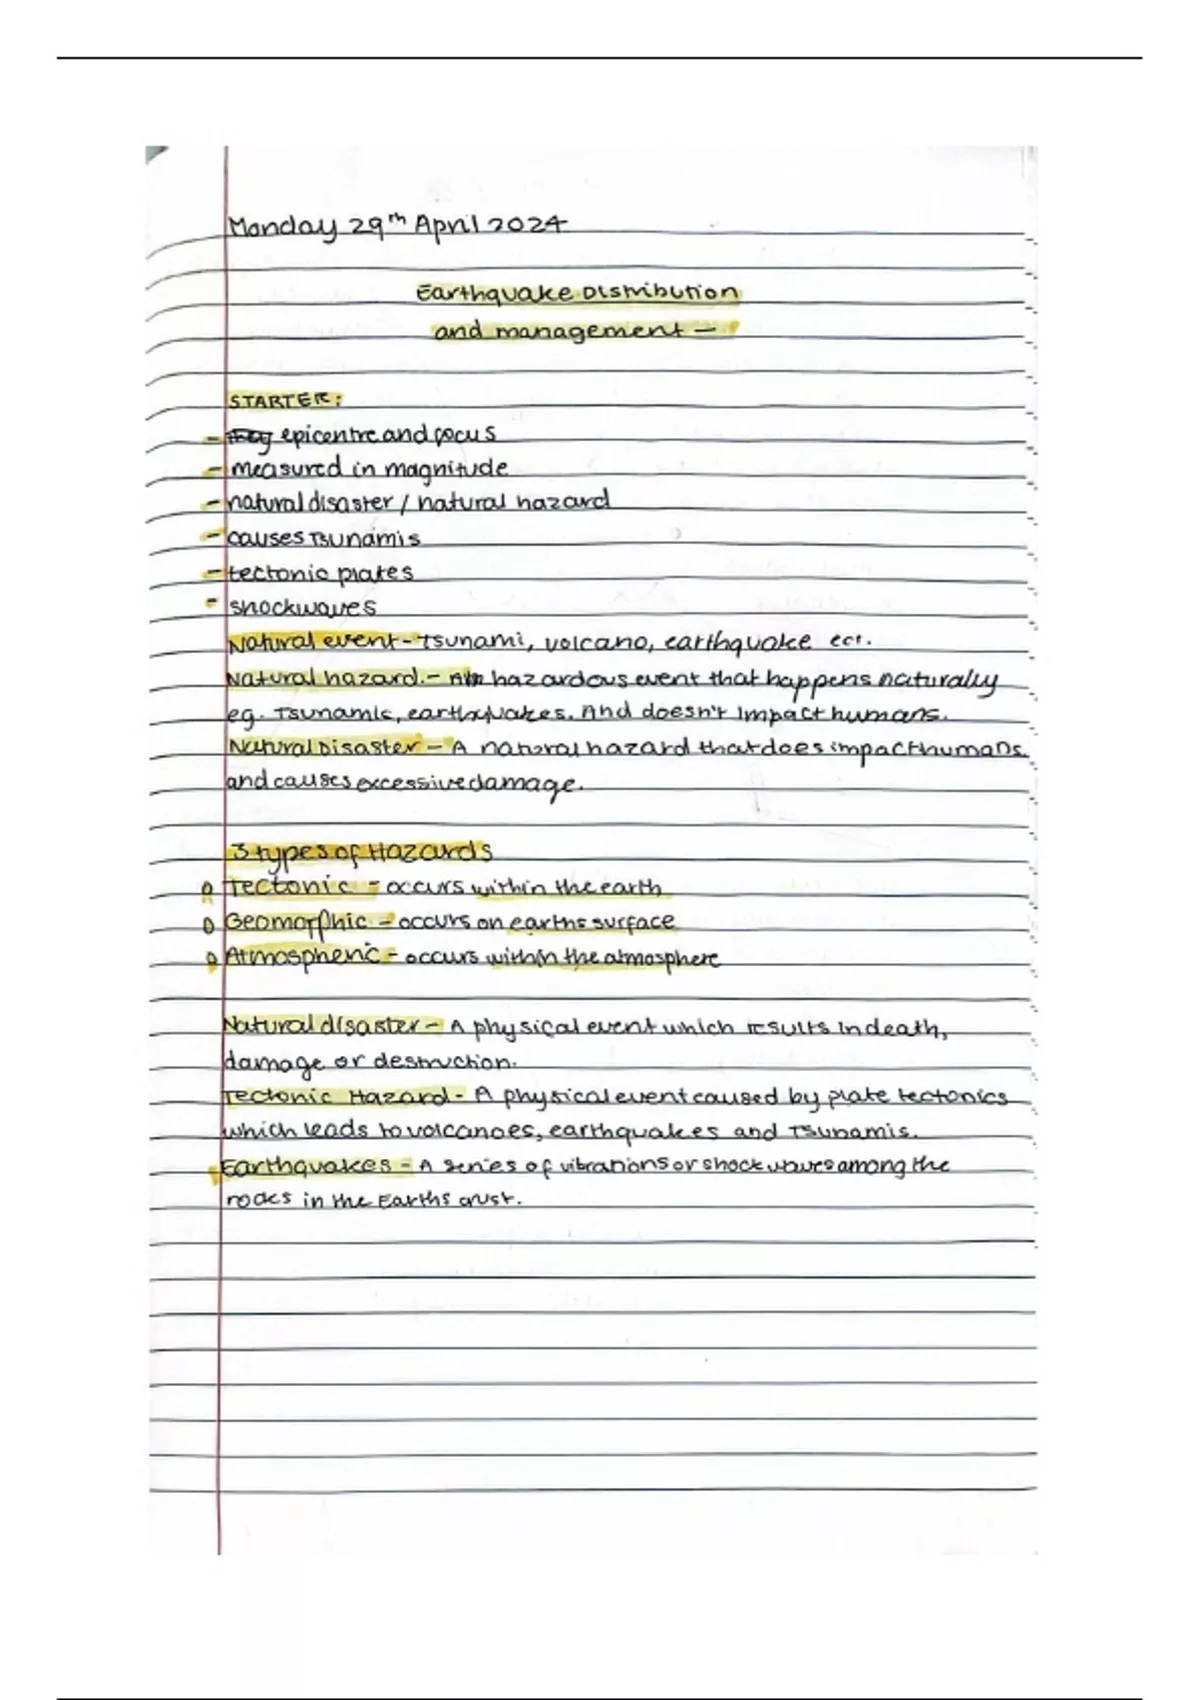 Monday 29th April 2024
Earthquake Distribution
and management –
STARTER:
- epicentre and focus
- measured in magnitude
- natural disaster / natural hazard
- causes Tsunamis
- tectonic plates
- shockwaves
Natural event - Tsunami, volcano, earthquake ect.
Natural hazard. - A hazardous event that happens naturally
eg. Tsunamis, earthquakes. And doesn't impact humans.
Natural Disaster - A natural hazard that does impact humans
and causes excessive damage.
3 types of Hazards
Tectonic - occurs within the earth
Geomorphic - occurs on earths surface
Atmospheric - occurs within the atmosphere
Natural disaster - A physical event which results in death,
damage or destruction.
Tectonic Hazard - A physical event caused by plate tectonics
which leads to volcanoes, earthquakes and Tsunamis.
Earthquakes - A series of vibrations or shockwaves among the
rocks in the Earths crust.